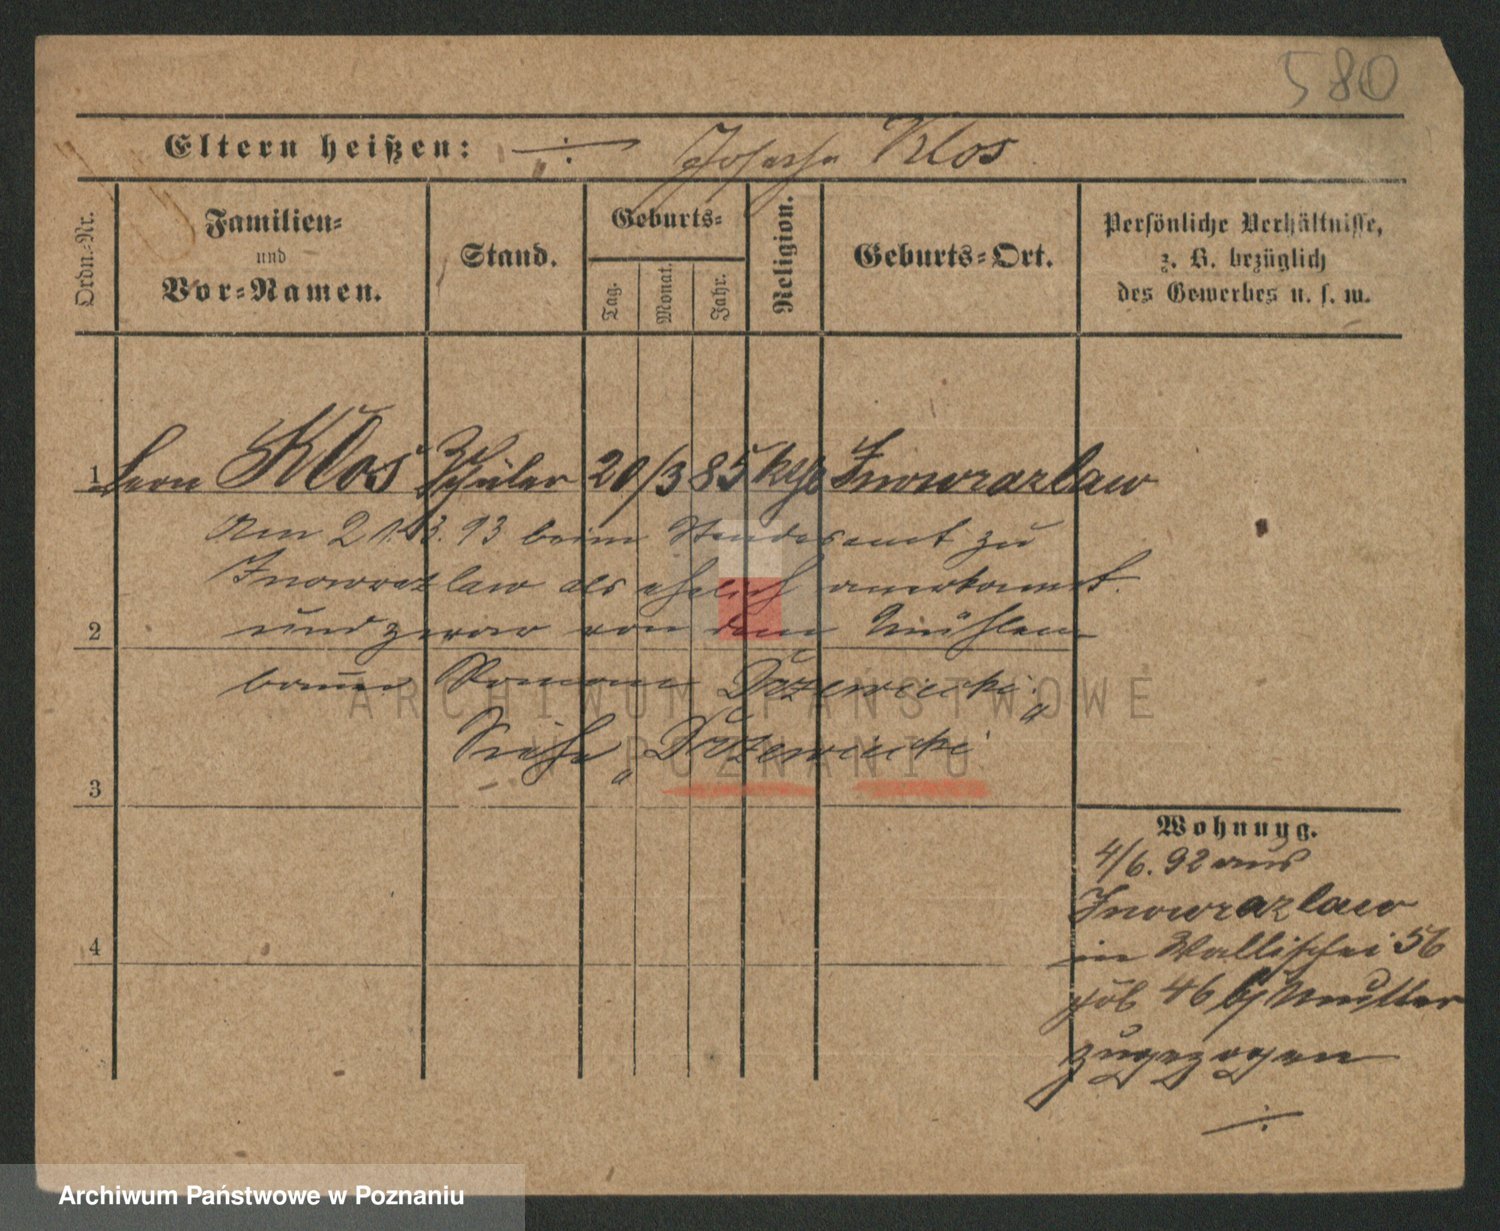 580
Eltern heißen: ÷ Josepha Klos
Ordn.-Nr.
Familien-
und
Vor-Namen.
Stand.
Geburts-
Tag.
Monat.
Jahr.
Religion.
Geburts-Ort.
Persönliche Verhältnisse,
z. B. bezüglich
des Gewerbes u. s. w.
1 Leon Klos Schüler 20/3 85 kth Inowrazlaw
Am 21.3.93 beim Standesamt zu
Inowrazlaw als ehelich anerkannt
2 und zwar von dem Mühlen-
bauer Roman Drzewiecki.
Siehe „Drzewiecki"
3
4
Wohnung.
4/6. 92 aus
Inowrazlaw
in Wallischei 56
46 Mutter
zugezogen
÷
ARCHIWUM PAŃSTWOWE
W POZNANIU
Archiwum Państwowe w Poznaniu